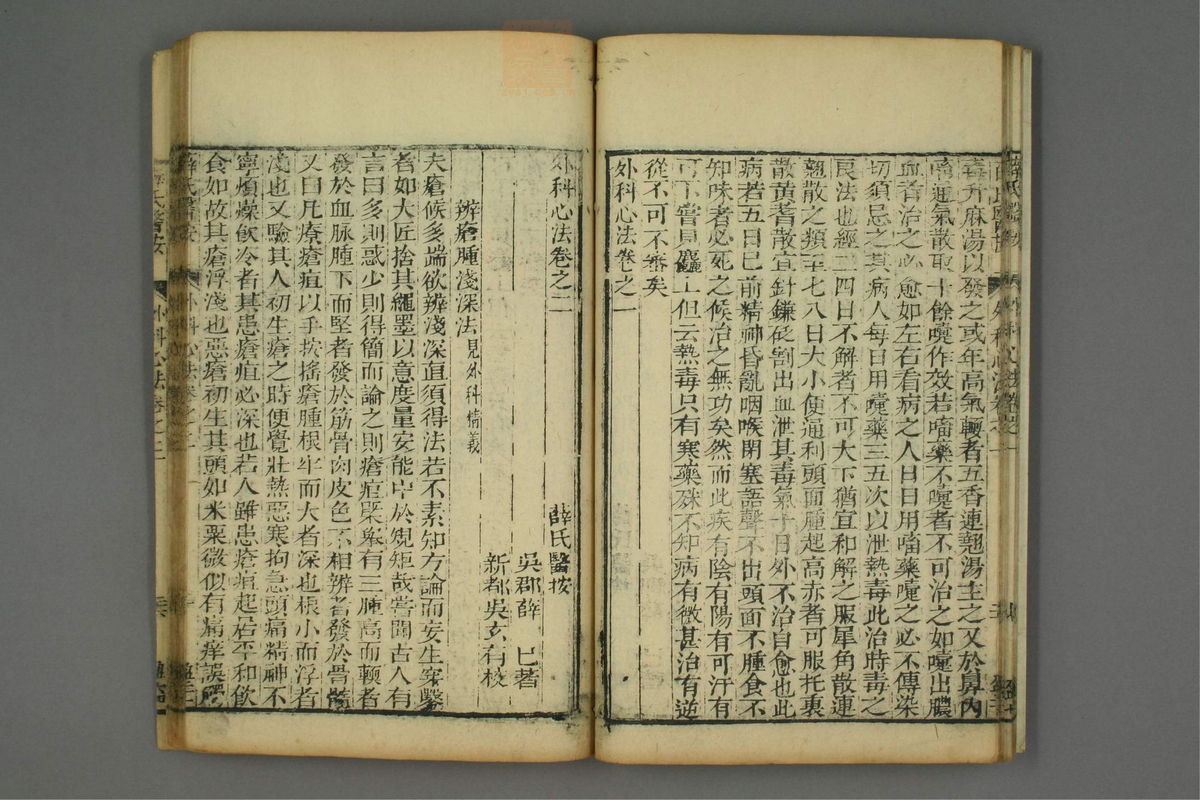 毒升麻湯以發之或年高氣輭者五香連翹湯主之又於鼻內
㗜通氣散取十餘嚔作效若㗜藥不嚔者不可治之如嚔出膿
血者治之必愈如左右看病之人日日用㗜藥嚔之必不傳染
切須忌之其病人每日用嚔藥三五次以泄熱毒此治時毒之
良法也經三四日不解者不可大下猶宜和解之服犀角散連
翹散之類至七八日大小便通利頭面腫起高赤者可服托裏
散黃耆散宜針鐮砭割出血泄其毒氣十日外不治自愈也此
病若五日已前精神昏亂咽喉閉塞語聲不出頭面不腫食不
知味者必死之候治之無功矣然而此疾有陰有陽有可汗有
可下嘗見麤工但云熱毒只有寒藥殊不知病有微甚治有逆
從不可不審矣
外科心法卷之一
外科心法卷之二
薛氏醫按
吳郡薛 己著
新都吳玄有校
辨瘡腫淺深法見外科精義
夫瘡候多端欲辨淺深直須得法若不素知方論而妄生穿鑿
者如大匠捨其繩墨以意度量安能中於規矩哉嘗聞古人有
言曰多則惑少則得簡而論之則瘡疽槩舉有三腫高而輭者
發於血脉腫下而堅者發於筋骨肉皮色不相辨者發於骨髓
又曰凡療瘡疽以手按搖瘡腫根牢而大者深也根小而浮者
淺也又驗其人初生瘡之時便覺壯熱惡寒拘急頭痛精神不
寧煩燥飲冷者其患瘡疽必深也若人雖患瘡疽起居平和飲
食如故其瘡浮淺也惡瘡初生其頭如米粟微似有痛痒誤
薛氏醫按
外科心法卷之二